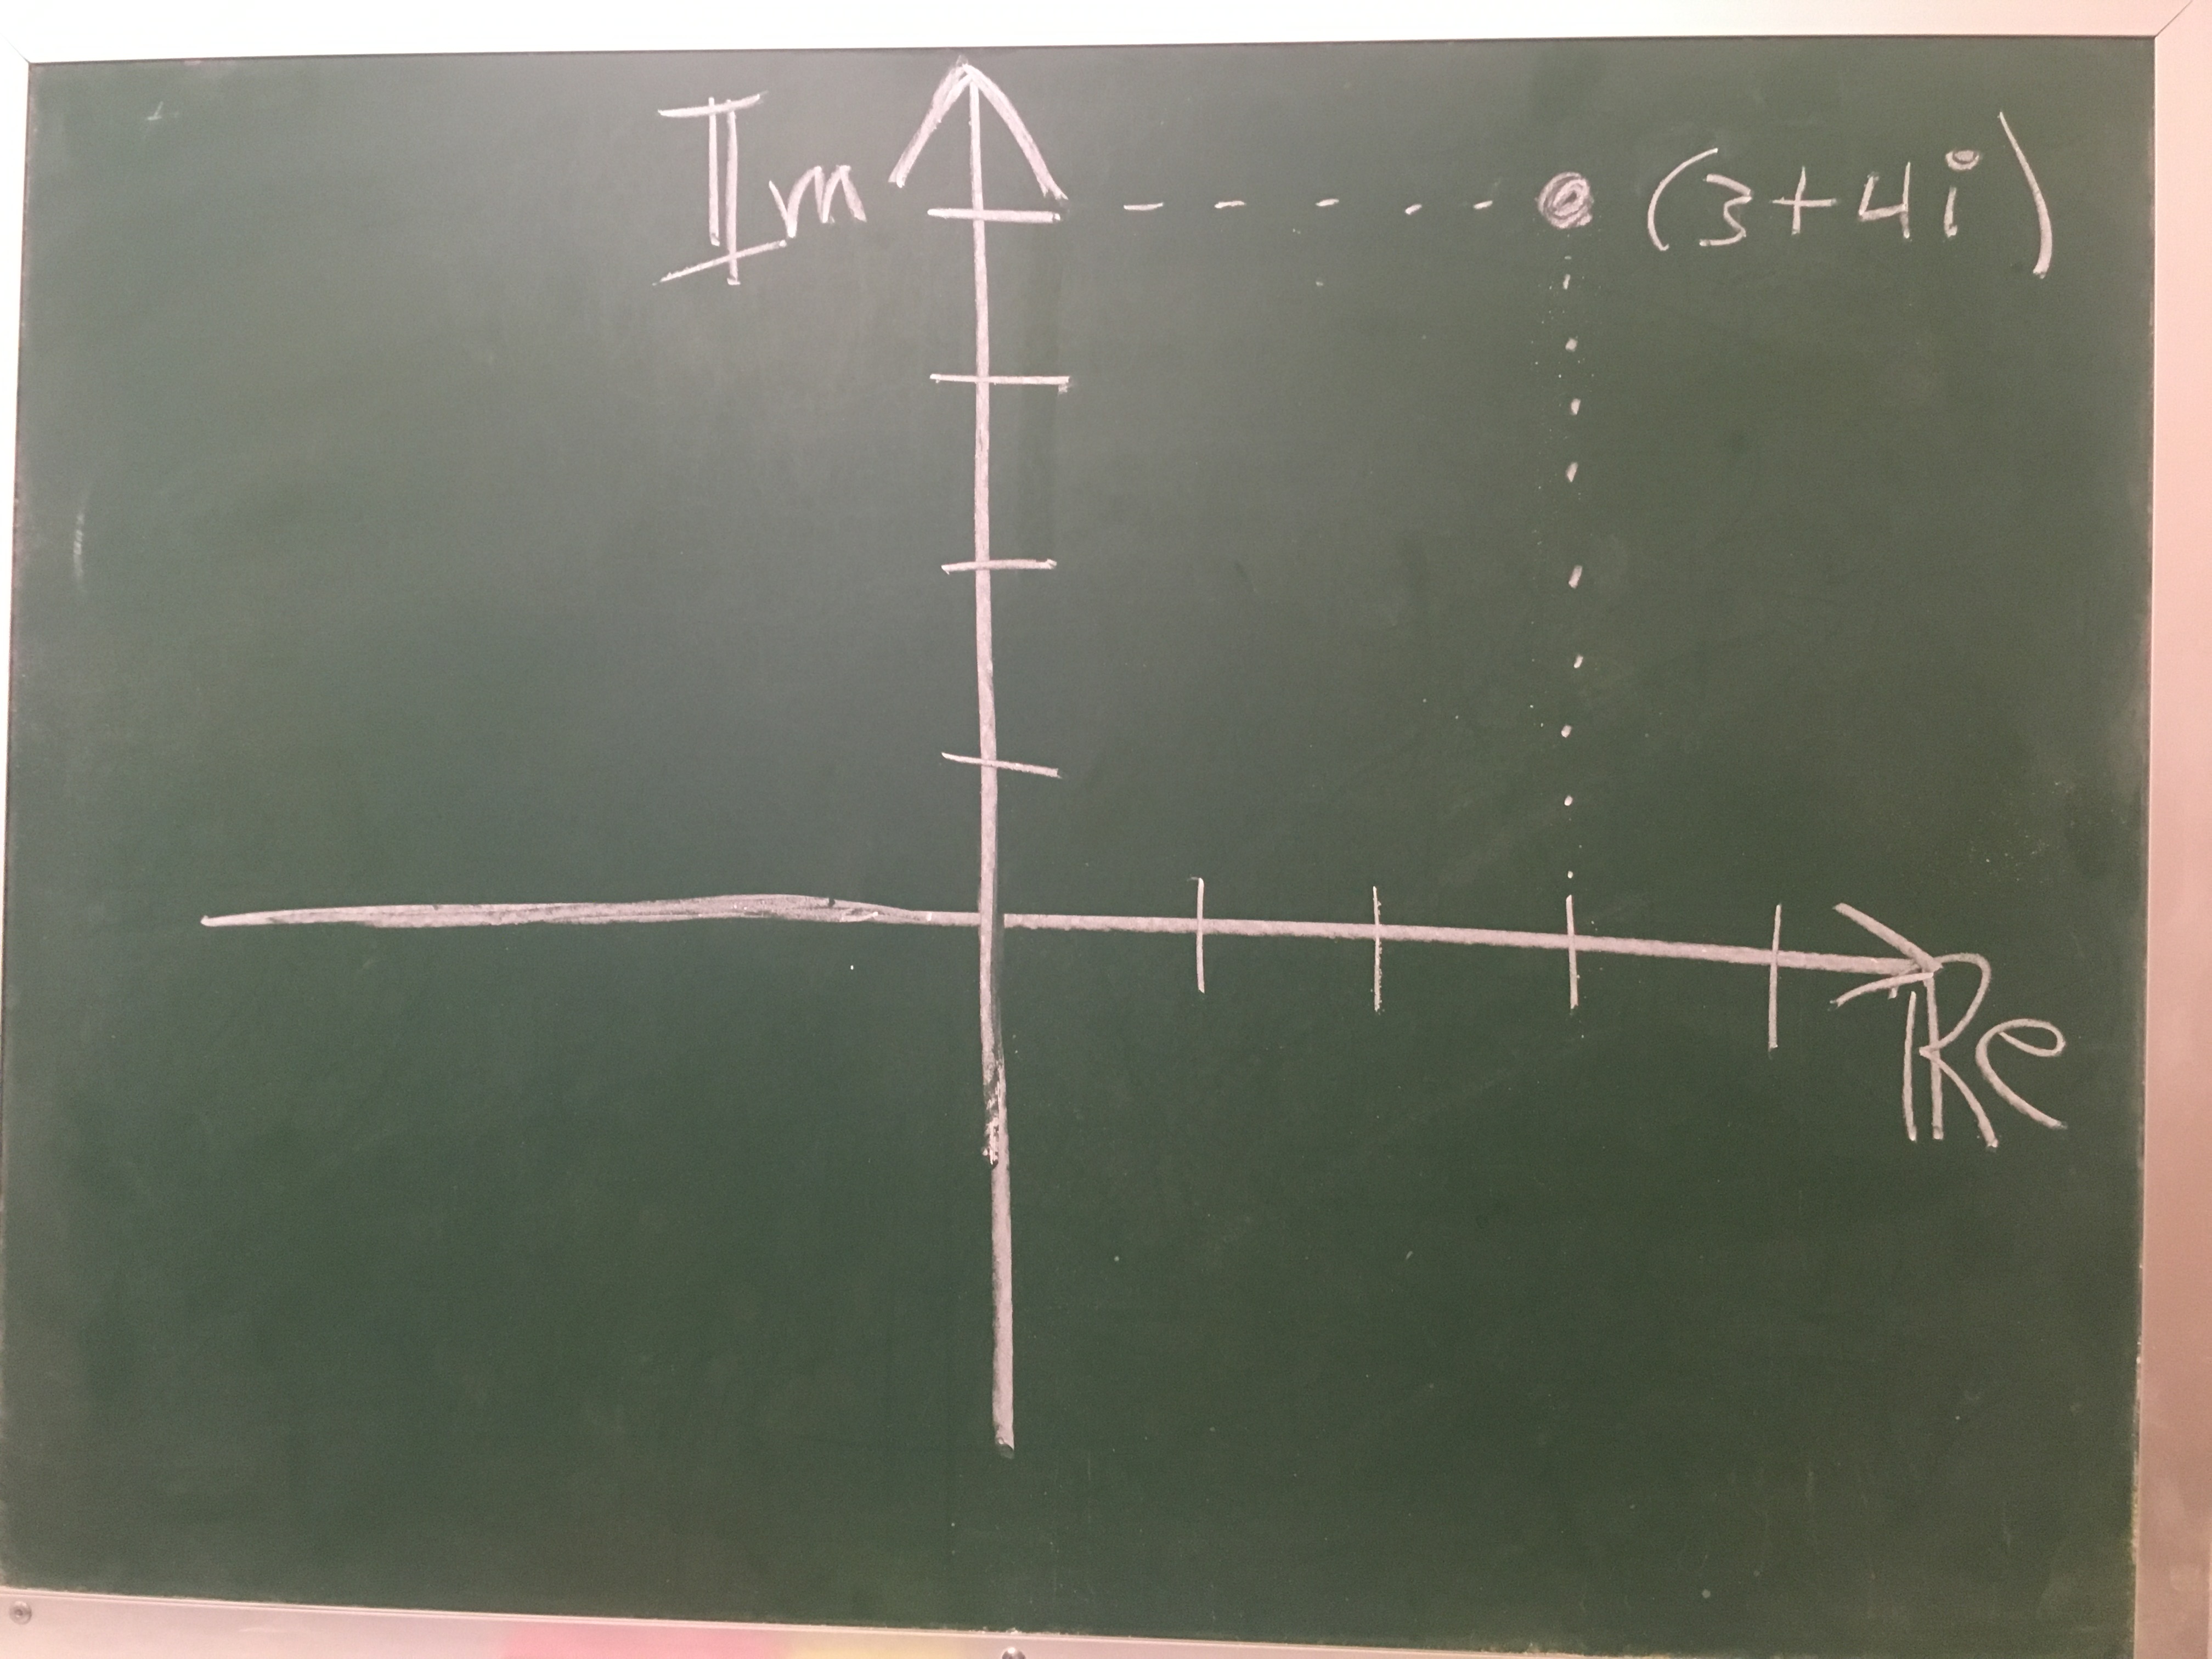 Im
(3+4i)
Re